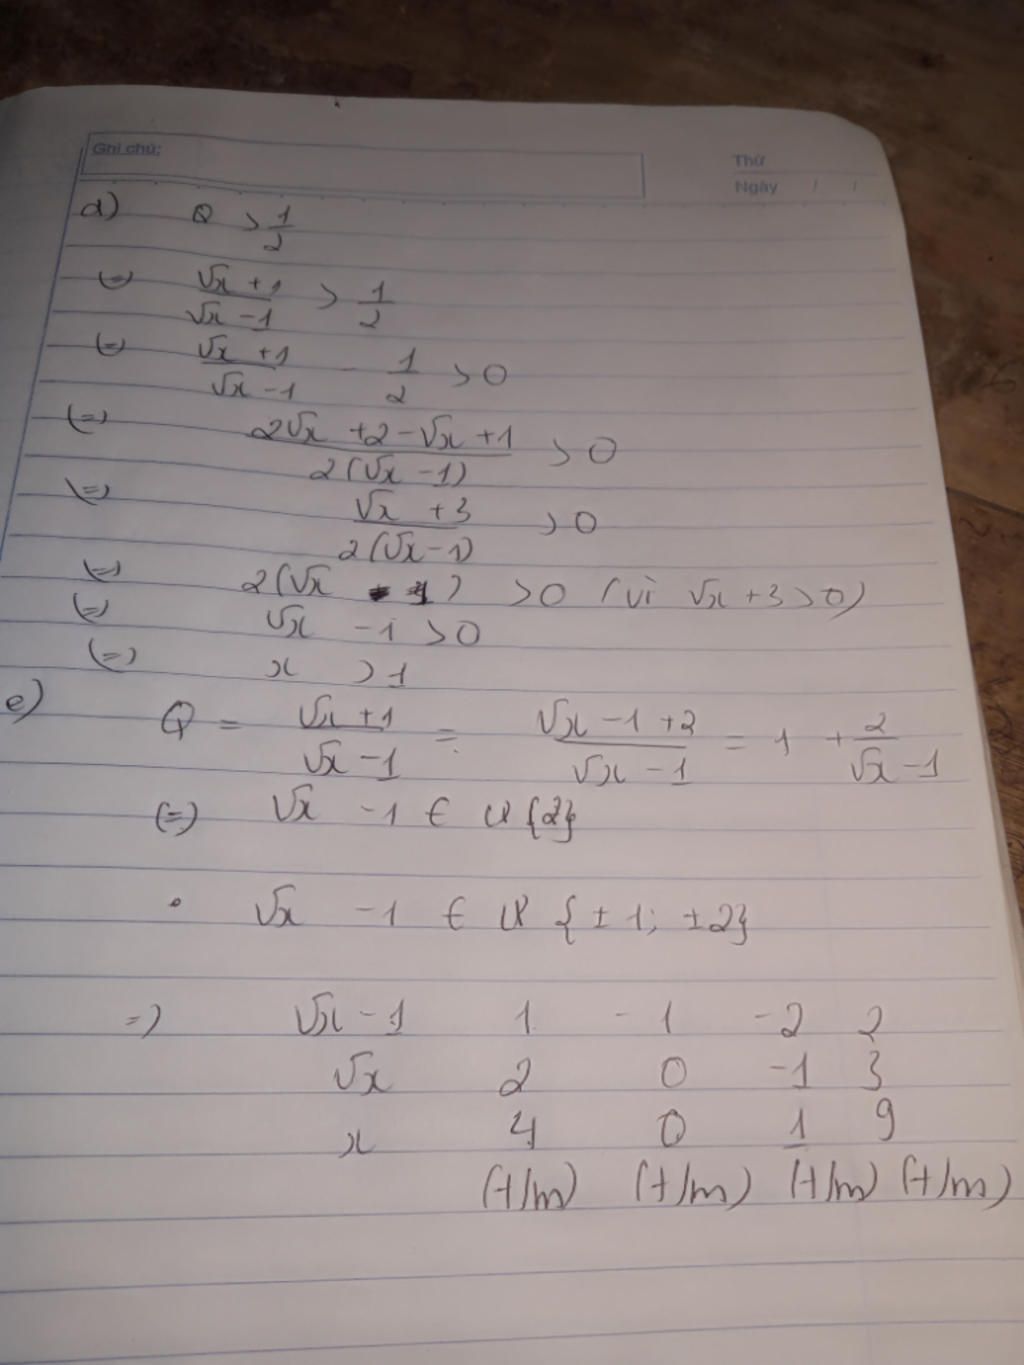 Ghi chú:
Thứ
Ngày / /
d) Q > 1/2
(=) (√x + 1)/(√x - 1) > 1/2
(=) (√x + 1)/(√x - 1) - 1/2 > 0
(=) (2√x + 2 - √x + 1)/(2(√x - 1)) > 0
(=) (√x + 3)/(2(√x - 1)) > 0
(=) 2(√x - 1) > 0 (vì √x + 3 > 0)
(=) √x - 1 > 0
(=) x > 1
e) Q = (√x + 1)/(√x - 1) = (√x - 1 + 2)/(√x - 1) = 1 + 2/(√x - 1)
(=) √x - 1 ∈ Ư {2}
• √x - 1 ∈ Ư {±1; ±2}
=) √x - 1 1 -1 -2 2
√x 2 0 -1 3
x 4 0 1 9
(t/m) (t/m) (t/m) (t/m)